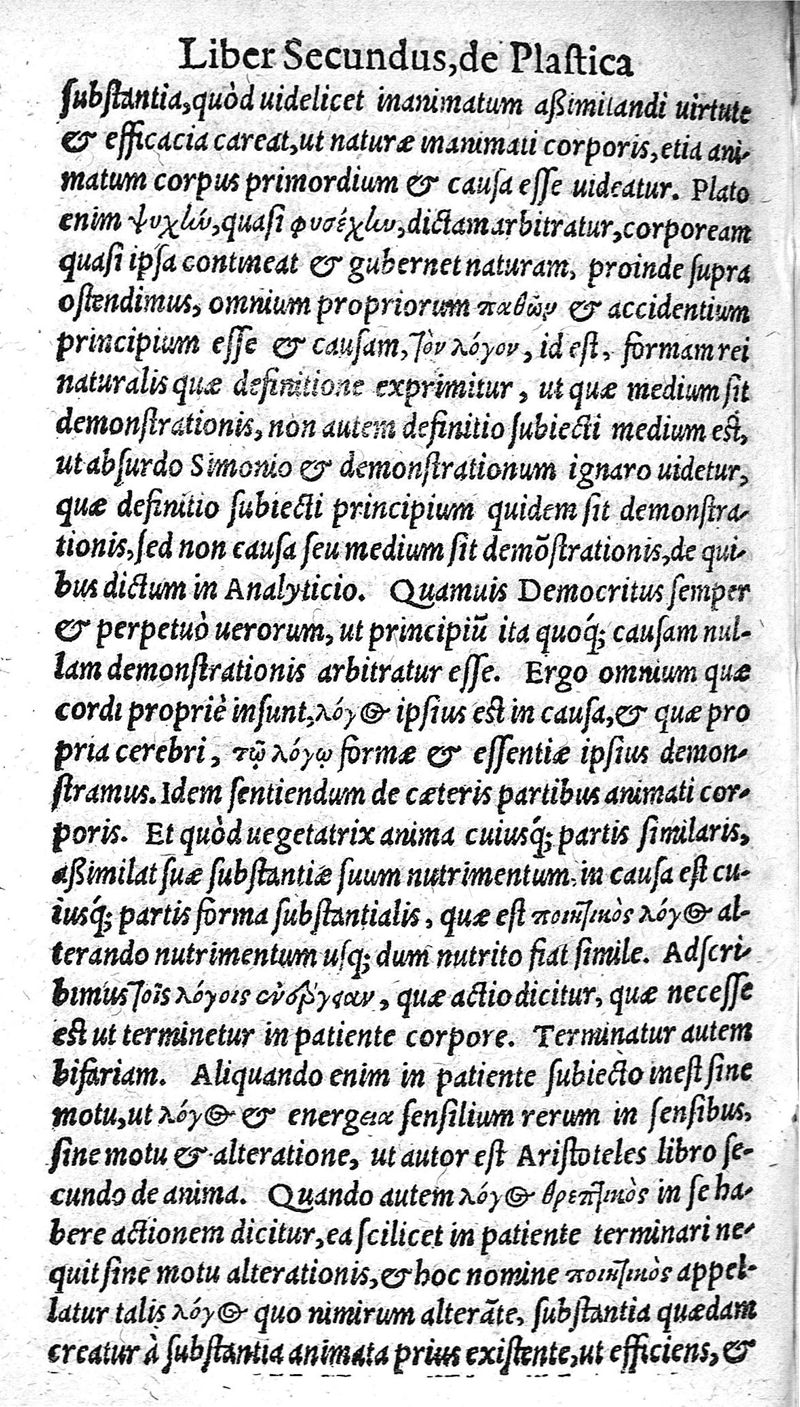 Liber Secundus, de Plastica
substantia, quòd uidelicet inanimatum aßimilandi uirtute
& efficacia careat, ut naturæ inanimati corporis, etiā ani-
matum corpus primordium & causa esse uideatur. Plato
enim ψυχὴν, quasi φυσέχην, dictam arbitratur, corpoream
quasi ipsa contineat & gubernet naturam, proinde supra
ostendimus, omnium propriorum παθῶν & accidentium
principium esse & causam, τὸν λόγον, id est, formam rei
naturalis quæ definitione exprimitur, ut quæ medium sit
demonstrationis, non autem definitio subiecti medium est,
ut absurdo Simonio & demonstrationum ignaro uidetur,
quæ definitio subiecti principium quidem sit demonstra-
tionis, sed non causa seu medium sit demōstrationis, de qui-
bus dictum in Analyticio. Quamuis Democritus semper
& perpetuò uerorum, ut principiū ita quoq; causam nul-
lam demonstrationis arbitratur esse. Ergo omnium quæ
cordi propriè insunt, λόγος ipsius est in causa, & quæ pro
pria cerebri, τῷ λόγῳ formæ & essentiæ ipsius demon-
stramus. Idem sentiendum de cæteris partibus animati cor-
poris. Et quòd uegetatrix anima cuiusq; partis similaris,
aßimilat suæ substantiæ suum nutrimentum, in causa est cu-
iusq; partis forma substantialis, quæ est ποιητικὸς λόγος al-
terando nutrimentum usq; dum nutrito fiat simile. Adscri-
bimus τοῖς λόγοις ἐνέργειαν, quæ actio dicitur, quæ necesse
est ut terminetur in patiente corpore. Terminatur autem
bifariam. Aliquando enim in patiente subiecto inest sine
motu, ut λόγος & energεια sensilium rerum in sensibus,
sine motu & alteratione, ut autor est Aristoteles libro se-
cundo de anima. Quando autem λόγος θρεπτικὸς in se ha-
bere actionem dicitur, ea scilicet in patiente terminari ne-
quit sine motu alterationis, & hoc nomine ποιητικὸς appel-
latur talis λόγος quo nimirum alterāte, substantia quædam
creatur à substantia animata prius existente, ut efficiens, &